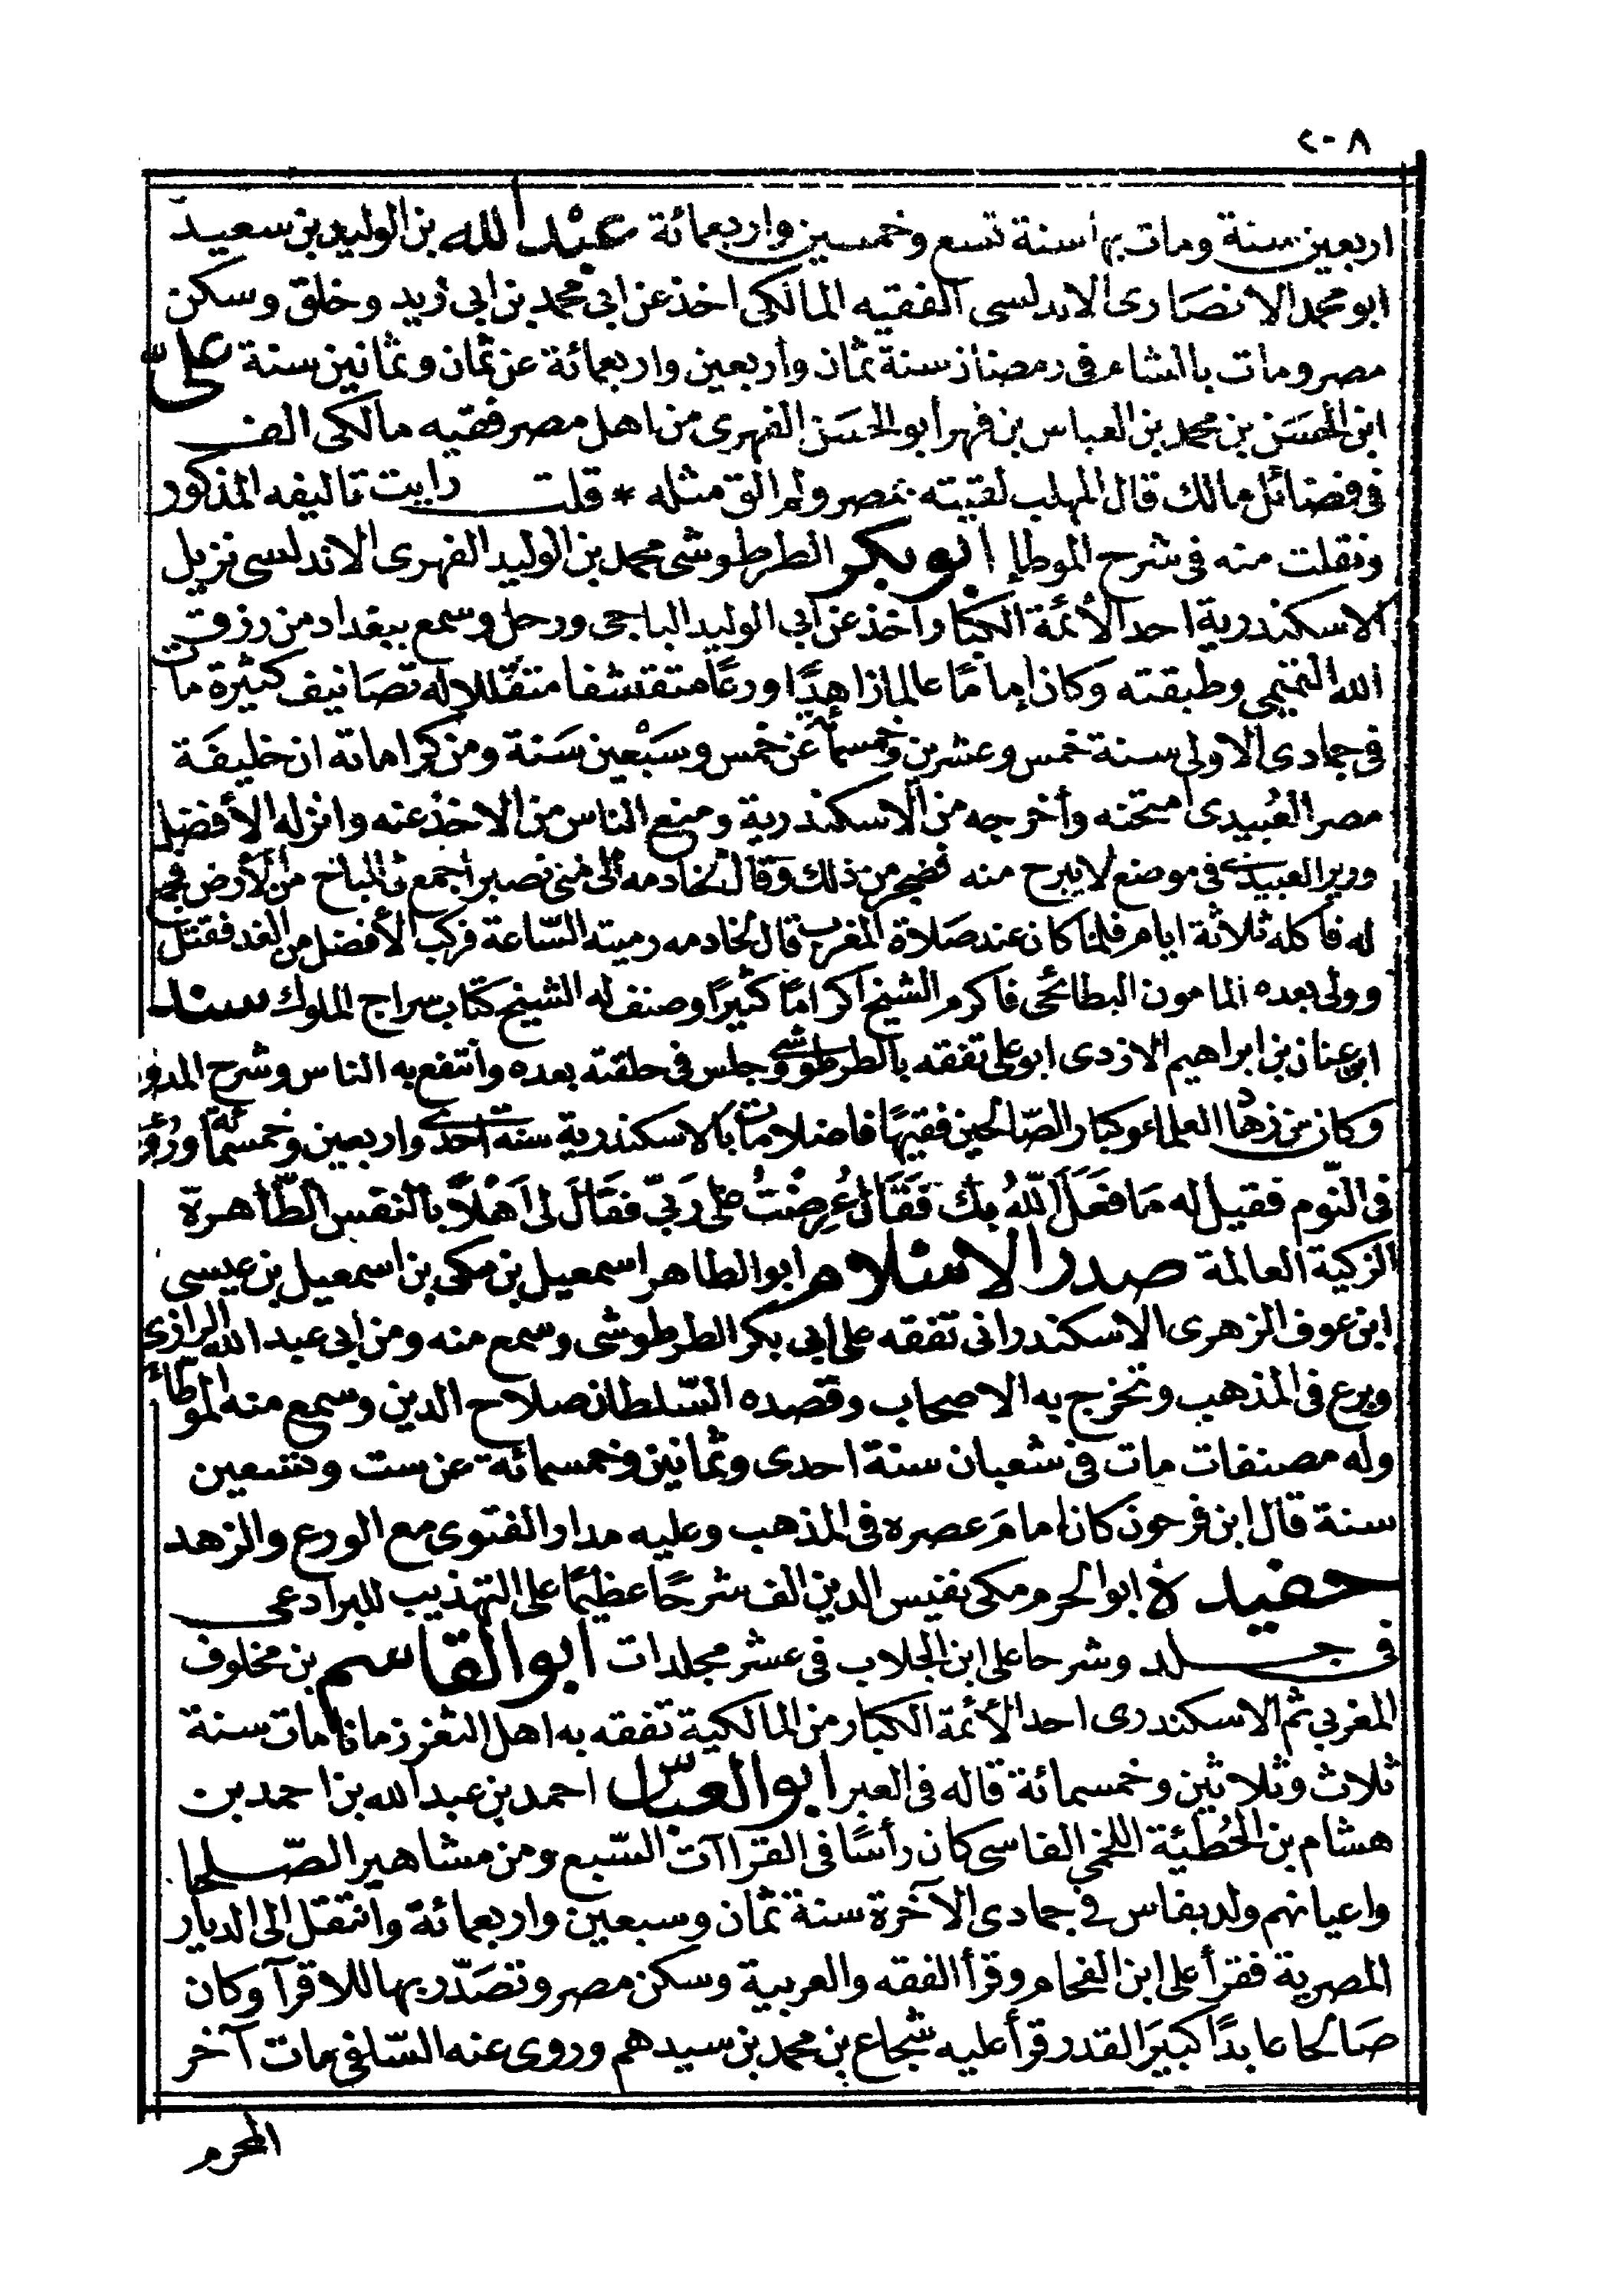 ٢٠٨
اربعين سنة ومات بها سنة تسع وخمسين واربعمائة عبد الله بن الوليد بن سعيد
ابو محمد الانصارى الاندلسى الفقيه المالكى اخذ عن ابى محمد بن ابى زيد وخلق وسكن
مصر ومات بالشام فى رمضان سنة ثمان وأربعين واربعمائة عن ثمان وثمانين سنة علىّ
ابن الحسَن بن محمد بن العباس بن فهر أبو الحسَن الفهرى من اهل مصر فقيه مالكى الف
فى فضائل مالك قال المهلب لقيته بمصر ولم الق مثله * قلت رايت تاليفه المذكور
ونقلت منه فى شرح الموطإ ابو بكر الطرطوشى محمد بن الوليد الفهرى الاندلسى نزيل
الاسكندرية احد الأئمة الكبار أخذ عن أبى الوليد الباجى ورحل وسمع ببغداد من رزق
الله التميمى وطبقته وَكان إمامًا عالما زاهدًا ورعًا متقشفا متقللا له تصَانيف كثيرة مات
فى جمادى الاولى سنة خمس وعشرين وخمسمائة عن خمس وسَبْعين سَنة ومن كراماته ان خليفَة
مصر العُبيدى امتحنه وأخرجه من الاسكندرية ومنع الناس من الاخذ عنه وانزله الأفضل
وزير العبيدى فى موضع لا يبرح منه فضجر من ذلك وَقال لخادمه الى متى نصبر اجمع لى المباح من الأرض فجمع
له فأكله ثلاثة ايام فلما كان عند صَلاة المغرب قال لخادمه رميته السّاعة فركب الأفضل من الغد فقتل
وولى بعده المامون البطائحى فاكرم الشيخ اكرامًا كثيرًا وصنف له الشيخ كتاب سراج الملوك سند
ابن عنان بن ابراهيم الازدى ابو على تفقه بالطرطوشى وجلس فى حلقته بعده وانتفع به الناس وشرح المدونة
وكان من زهاد العلماء وكبار الصّالحين فقيهًا فاضلا مات بالاسكندرية سنة احدى واربعين وخمسمائة ورُؤى
فى النّوم فقيل له مَا فعَلَ اللّهُ بك فَقَالَ عُرِضْتُ على رَبىّ فقَالَ لى اَهْلاً بالنفس الطّاهرة
الزكية العالمة صدر الاسلام ابو الطاهر اسمعيل بن مكى بن اسمعيل بن عيسى
ابن عوف الزهرى الاسكندرانى تفقه على ابى بكر الطرطوشى وسمع منه ومن ابى عبد الله الرازى
وبرع فى المذهب وتخرج به الاصحاب وقصده السّلطان صلاح الدين وسمع منه الموطأ
وله مصنفات مات فى شعبان سنة احدى وثمانين وخمسمائة عن ست وتسعين
سنة قال ابن فرحون كان امامَ عصره فى المذهب وعليه مدار الفتوى مع الورع والزهد
حفيده ابو الحرم مكى نفيس الدين الف شرحًا عظيمًا على التهذيب للبرادعى
فى جلد وشرحا على ابن الجلاب فى عشر مجلدات ابو القاسم بن مخلوف
المغربى ثم الاسكندرى احد الأئمة الكبار من المالكية تفقه به اهل الثغر زمانا مات سنة
ثلاث وثلاثين وخمسمائة قاله فى العبر ابو العبّاس احمد بن عبد الله بن احمد بن
هشام بن الحُطيئة اللخمى الفاسى كان رأسًا فى القراآت السّبع ومن مشاهير الصّلحا
واعيانهم ولد بفاس فى جمادى الآخرة سنة ثمان وسبعين واربعمائة وانتقل الى الديار
المصرية فقرأ على ابن الفحام وقرأ الفقه والعربية وسكن مصر وتصَدّر بها للاقرآ وكان
صَالحا عابدًا كبيَر القدر قرأ عليه شجاع بن محمد بن سيدهم وروى عنه السّلفى مات آخر
المحرم